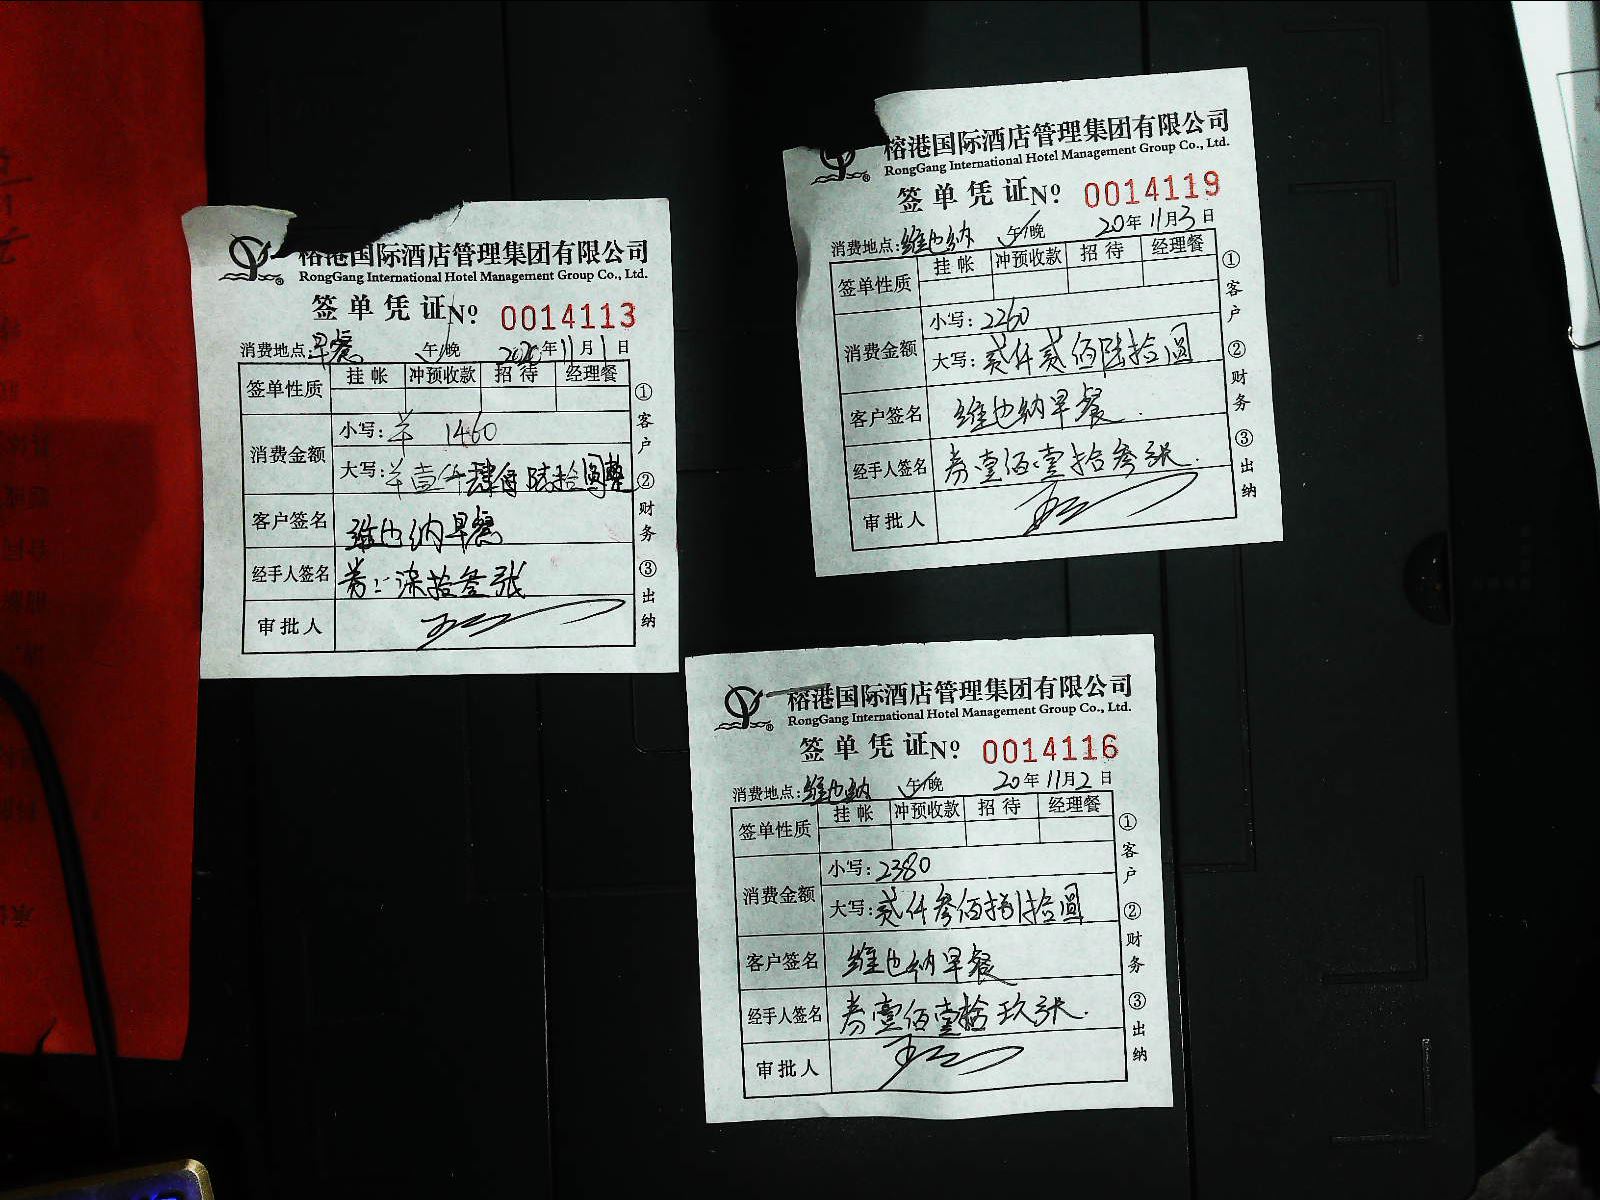 榕港国际酒店管理集团有限公司
RongGang International Hotel Management Group Co., Ltd.
签单凭证 Nº: 0014113
消费地点: 早餐 午/晚 2020年11月1日
签单性质 挂帐 冲预收款 招待 经理餐
消费金额 小写: 1460
大写: 壹仟肆佰陆拾圆整
客户签名 维也纳早餐
经手人签名 券: 柒拾叁张
审批人
①客户 ②财务 ③出纳
榕港国际酒店管理集团有限公司
RongGang International Hotel Management Group Co., Ltd.
签单凭证 Nº: 0014119
消费地点: 维也纳 午/晚 20年11月3日
签单性质 挂帐 冲预收款 招待 经理餐
消费金额 小写: 2260
大写: 贰仟贰佰陆拾圆
客户签名 维也纳早餐.
经手人签名 券壹佰壹拾叁张.
审批人
①客户 ②财务 ③出纳
榕港国际酒店管理集团有限公司
RongGang International Hotel Management Group Co., Ltd.
签单凭证 Nº: 0014116
消费地点: 维也纳 午/晚 20年11月2日
签单性质 挂帐 冲预收款 招待 经理餐
消费金额 小写: 2380
大写: 贰仟叁佰捌拾圆
客户签名 维也纳早餐
经手人签名 券壹佰壹拾玖张.
审批人
①客户 ②财务 ③出纳